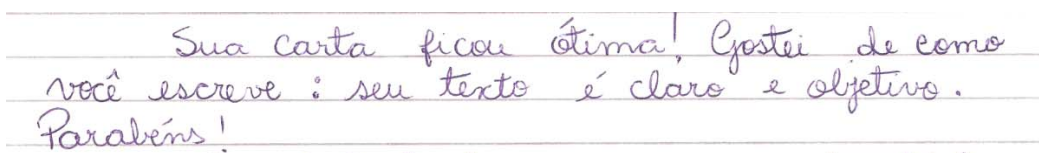 Sua carta ficou ótima! Gostei de como
você escreve : seu texto é claro e objetivo.
Parabéns!